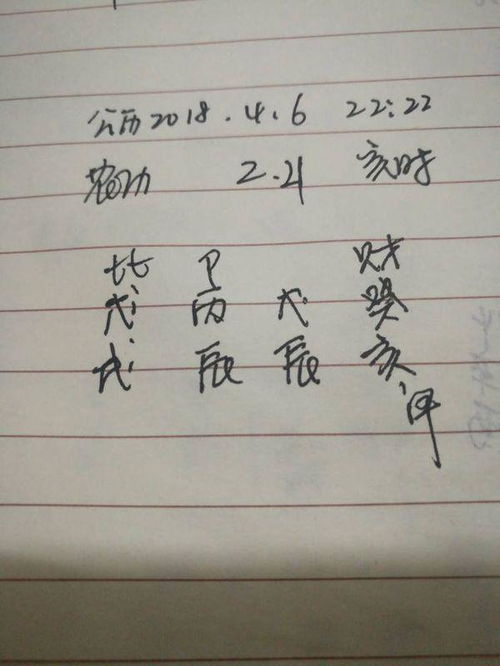 公历2018.4.6 22:22
农历 2.21 亥时
比 卩 财
戊 丙 戊 癸
戌 辰 辰 亥
甲